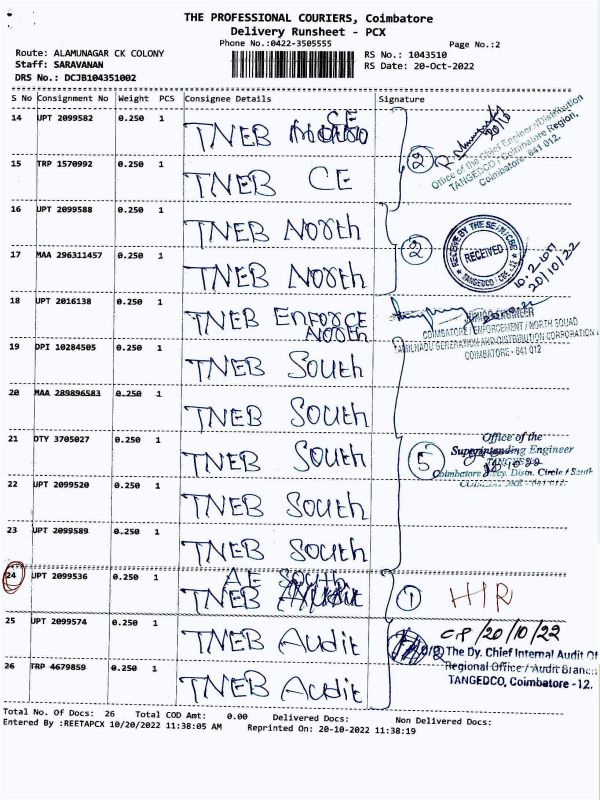 THE PROFESSIONAL COURIERS, Coimbatore
Delivery Runsheet - PCX
Phone No.:0422-3505555
Page No.:2
Route: ALAMUNAGAR CK COLONY
RS No.: 1043510
Staff: SARAVANAN
RS Date: 20-Oct-2022
DRS No.: DCJB104351002
S No Consignment No Weight PCS Consignee Details Signature
14 UPT 2099582 0.250 1 TNEB CE
2
Office of the Chief Engineer/Distribution
TANGEDCO / Coimbatore Region,
Coimbatore- 641 012.
15 TRP 1570992 0.250 1 TNEB CE
16 UPT 2099588 0.250 1 TNEB North
2
RECEIVED
20/10/22
17 MAA 296311457 0.250 1 TNEB North
18 UPT 2016138 0.250 1 TNEB ENFORCE
North
COIMBATORE / ENFORCEMENT / NORTH SQUAD
TAMILNADU GENERATION AND DISTRIBUTION CORPORATION
COIMBATORE - 641 012
19 DPI 10284505 0.250 1 TNEB South
20 MAA 289896583 0.250 1 TNEB South
21 DTY 3705027 0.250 1 TNEB South
5
Office of the
Superintending Engineer
TANGEDCO
22 UPT 2099520 0.250 1 TNEB South
23 UPT 2099589 0.250 1 TNEB South
24 UPT 2099536 0.250 1 AE South
TNEB
1
HIR
25 UPT 2099574 0.250 1 TNEB Audit
20/10/22
O/o The Dy. Chief Internal Audit Of
Regional Office / Audit Branch
TANGEDCO, Coimbatore -12.
26 TRP 4679859 0.250 1 TNEB Audit
Total No. Of Docs: 26 Total COD Amt: 0.00 Delivered Docs: Non Delivered Docs:
Entered By :REETAPCX 10/20/2022 11:38:05 AM Reprinted On: 20-10-2022 11:38:19